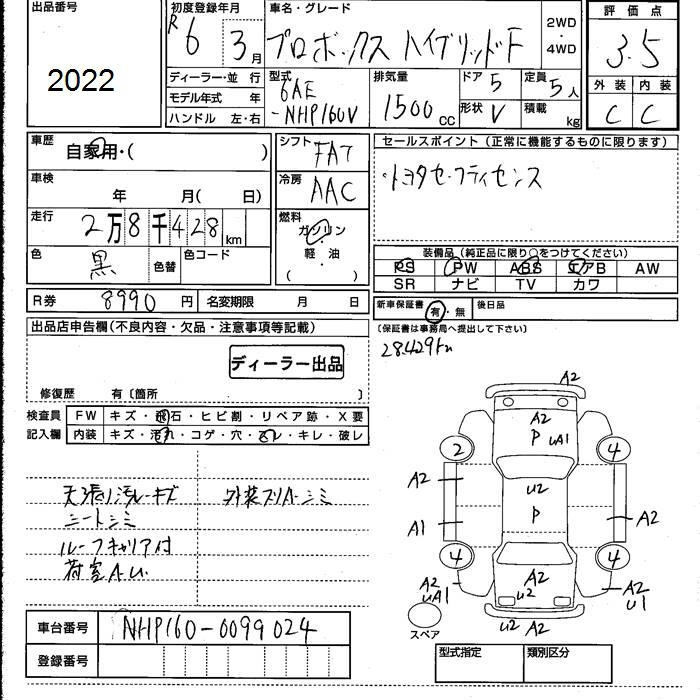 出品番号
2022
初度登録年月
R 6 3月
車名・グレード
プロボックス ハイブリッドF
2WD
・
4WD
評価点
3.5
外装 内装
C C
ディーラー・並 行
モデル年式 年
ハンドル 左・右
型式
6AE
-NHP160V
排気量
1500cc
ドア 5
形状 V
定員 5人
積載 kg
車歴
自家用・( )
車検
年 月( 日)
走行
2万8千428km
色
黒
色替
色コード
シフト
FAT
冷房
AAC
燃料
ガソリン
・
軽・油
( )
セールスポイント(正常に機能するものに限ります)
・トヨタセーフティセンス
装備品(純正品に限り○をつけてください)
PS PW ABS エアB AW
SR ナビ TV カワ
R券 8990円 名変期限 月 日
新車保証書 有・無 後日品
(保証書は事務局へ提出して下さい)
28.429km
出品店申告欄(不良内容・欠品・注意事項等記載)
ディーラー出品
修復歴 有〔箇所 〕
検査員
記入欄
FW キズ・飛石・ヒビ割・リペア跡・X要
内装 キズ・汚れ・コゲ・穴・スレ・キレ・破レ
天張り汚レキズ
シートシミ
ルーフキャリア付
荷室A.U.
外装スリキズシミ
A2
A2
P
uA1
2
4
A2
u2
A1
P
A2
4
4
A2
uA1
A2
u2
A2
u1
u2 A2
スペア
車台番号 NHP160-0099024
登録番号
型式指定 類別区分